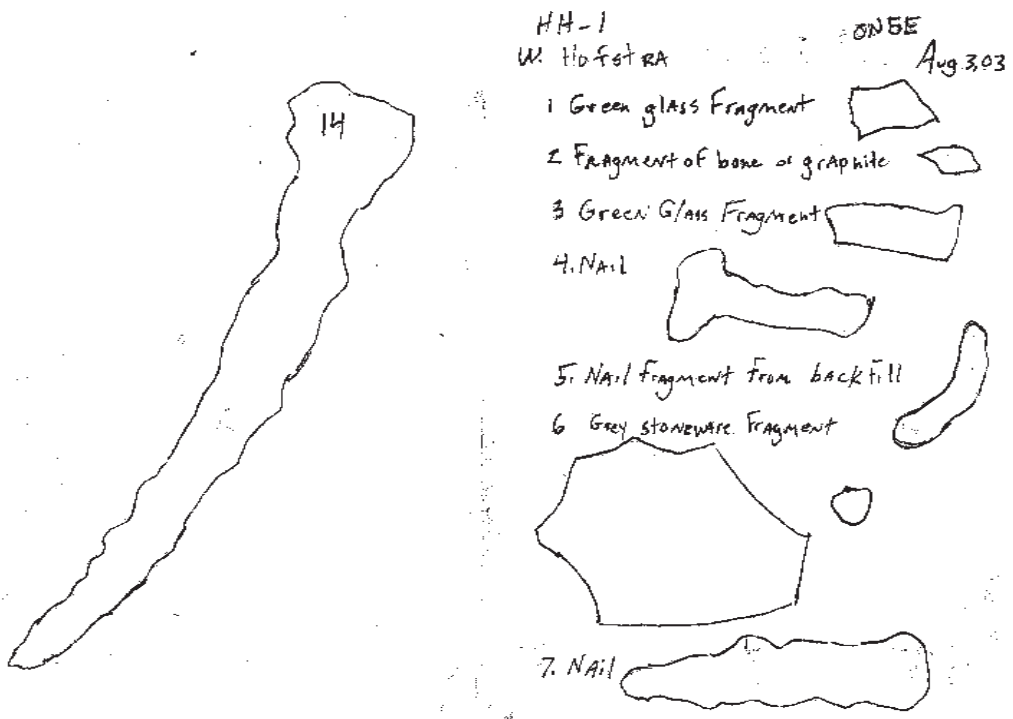 14
HH-1
0N5E
W. HofstRA
Aug 3,03
1 Green glAss Fragment
2 FRAgment of bone or graphite
3 Green Glass Fragment
4. NAil
5. NAil fragment from backfill
6 Grey stoneware Fragment
7. NAil